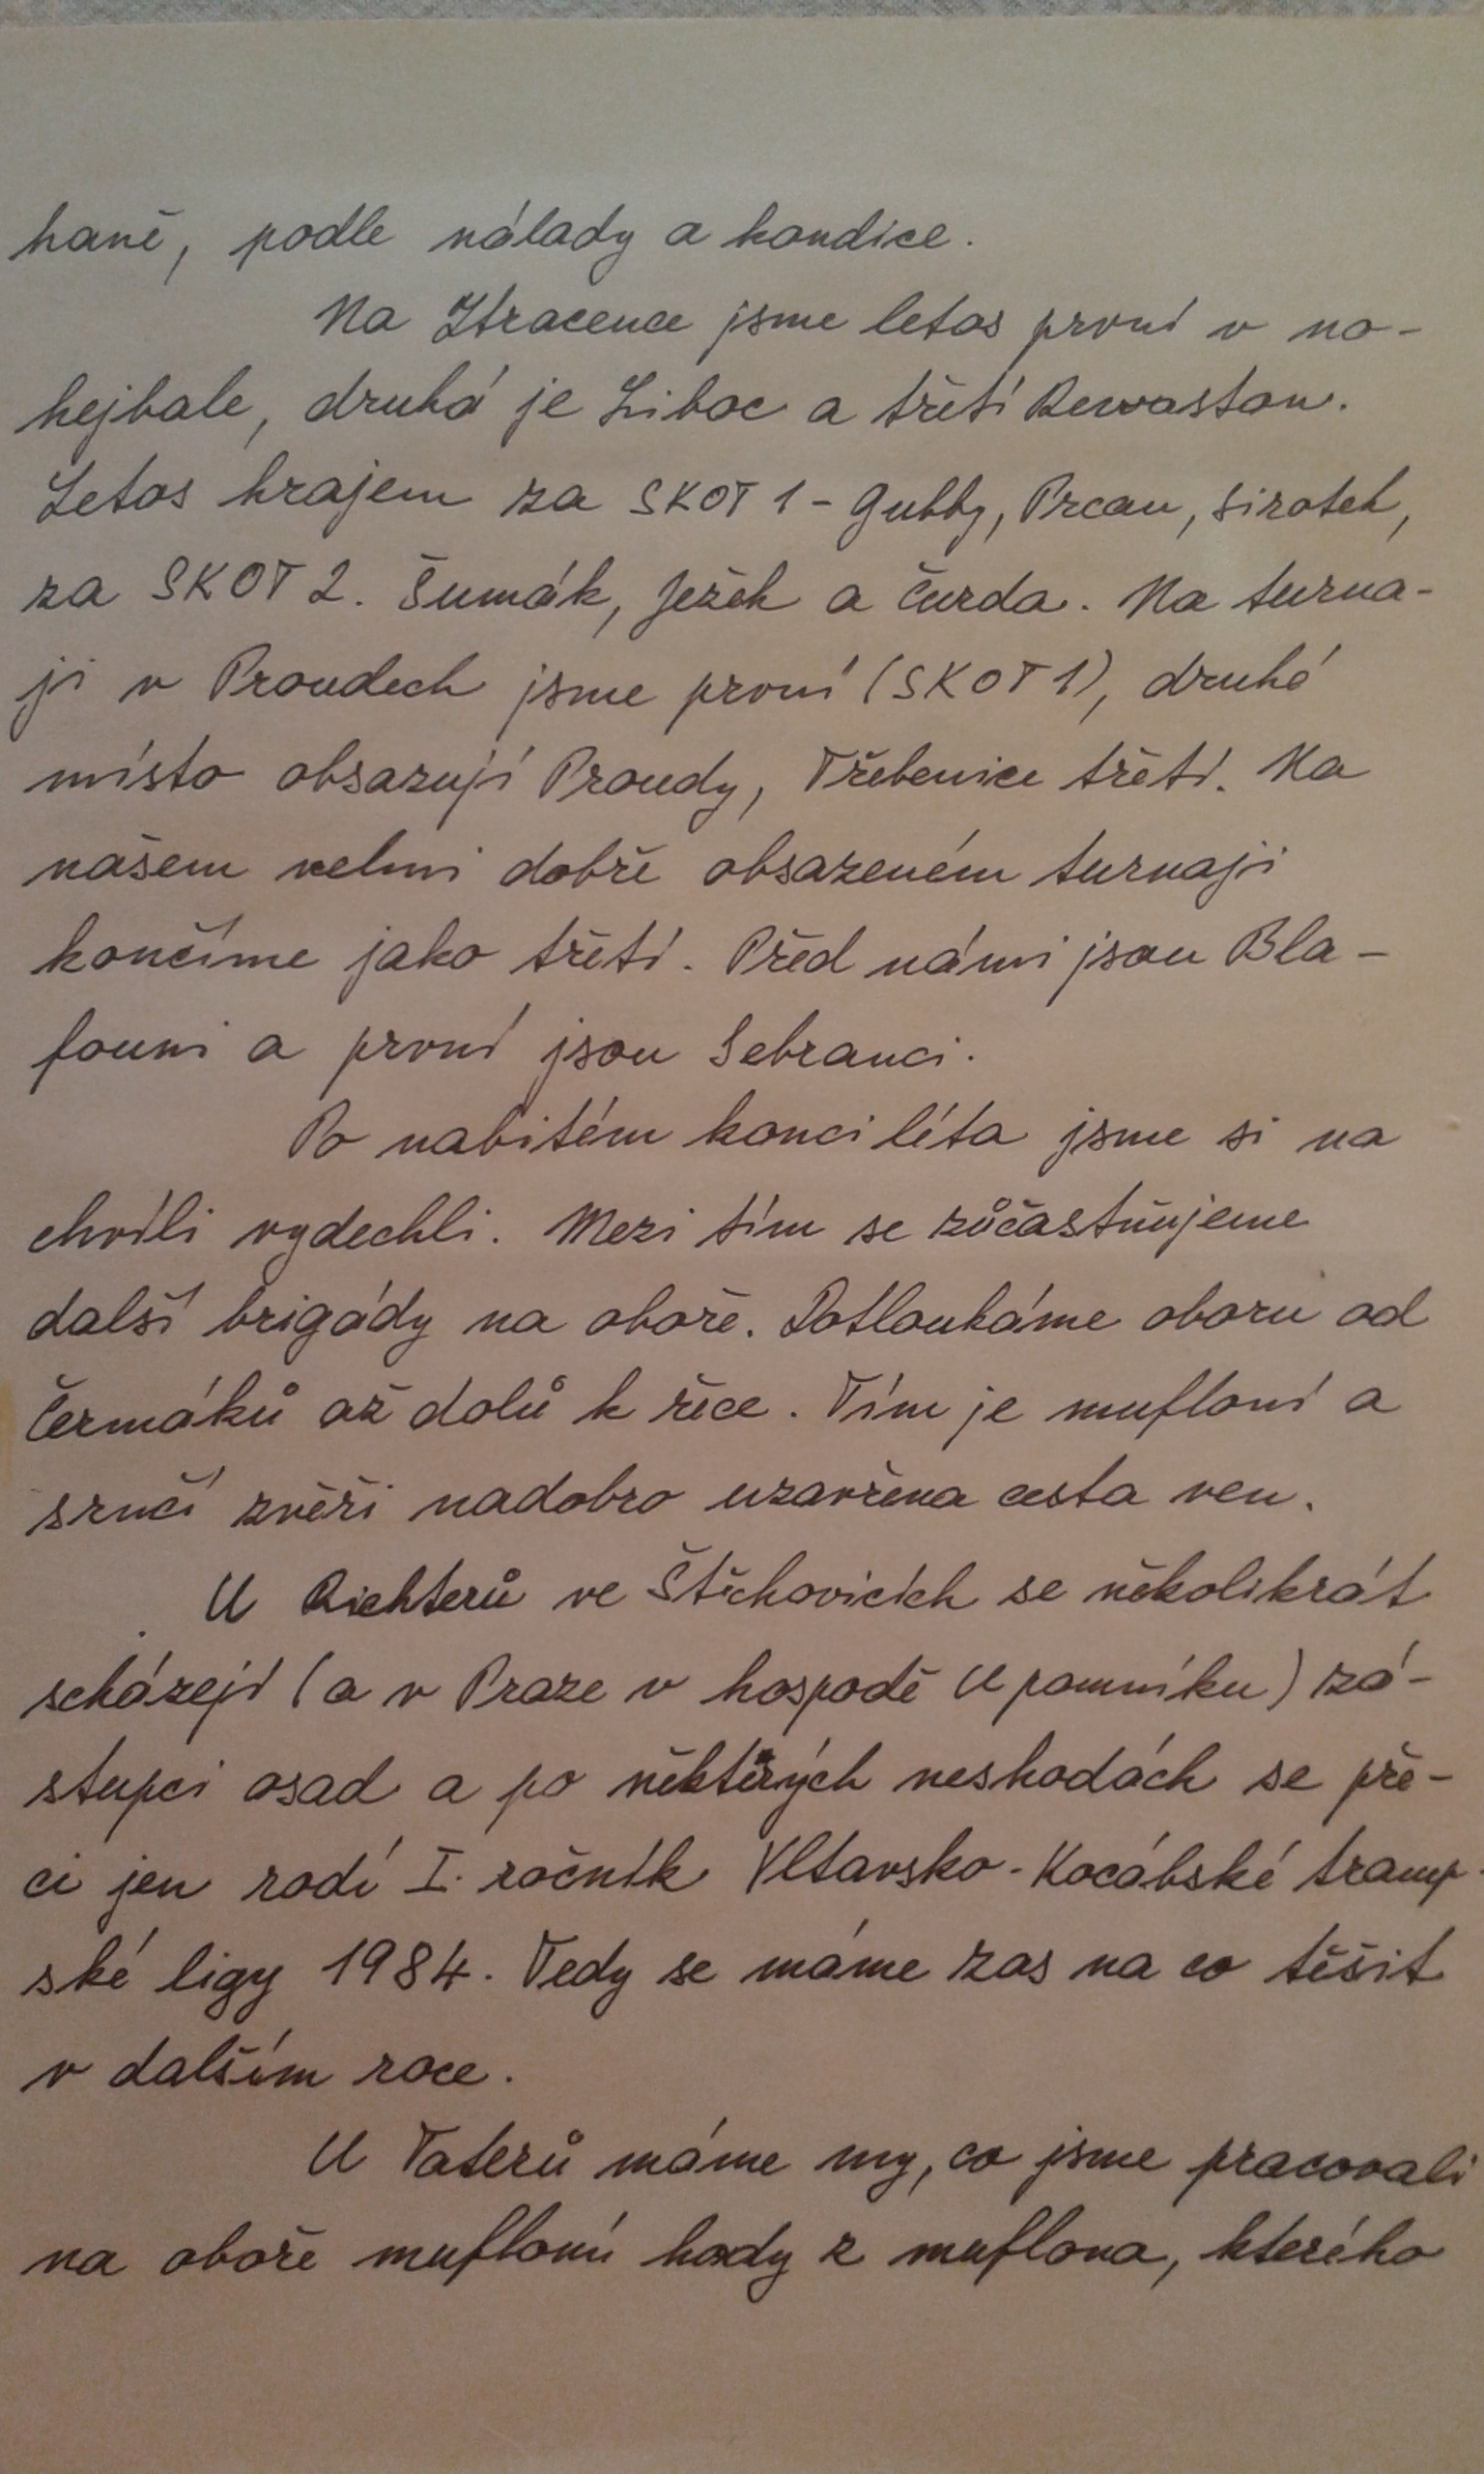 haně, podle nálady a kondice.
Na Ztracence jsme letos první v no-
hejbale, druhá je Liboc a třetí Rewaston.
Letos hrajem za SKOT 1 - Gubby, Prcan, Sirotek,
za SKOT 2. Šumák, Ježek a Čurda. Na turna-
ji v Proudech jsme první (SKOT 1), druhé
místo obsazují Proudy, Třebenice třetí. Na
našem velmi dobře obsazeném turnaji
končíme jako třetí. Před námi jsou Bla-
founi a první jsou Sebranci.
Po nabitém konci léta jsme si na
chvíli vydechli. Mezi tím se zůčastňujeme
další brigády na oboře. Dotloukáme oboru od
Čermáků až dolů k řece. Tím je mufloní a
srnčí zvěři nadobro uzavřena cesta ven.
U Richterů ve Štěchovicích se několikrát
scházejí (a v Praze v hospodě U pomníku) zá-
stupci osad a po některých neshodách se pře-
ci jen rodí I. ročník Vltavsko-Kocábské tramp-
ské ligy 1984. Tedy se máme zas na co těšit
v dalším roce.
U Taterů máme my, co jsme pracovali
na oboře mufloní hody z muflona, kterého